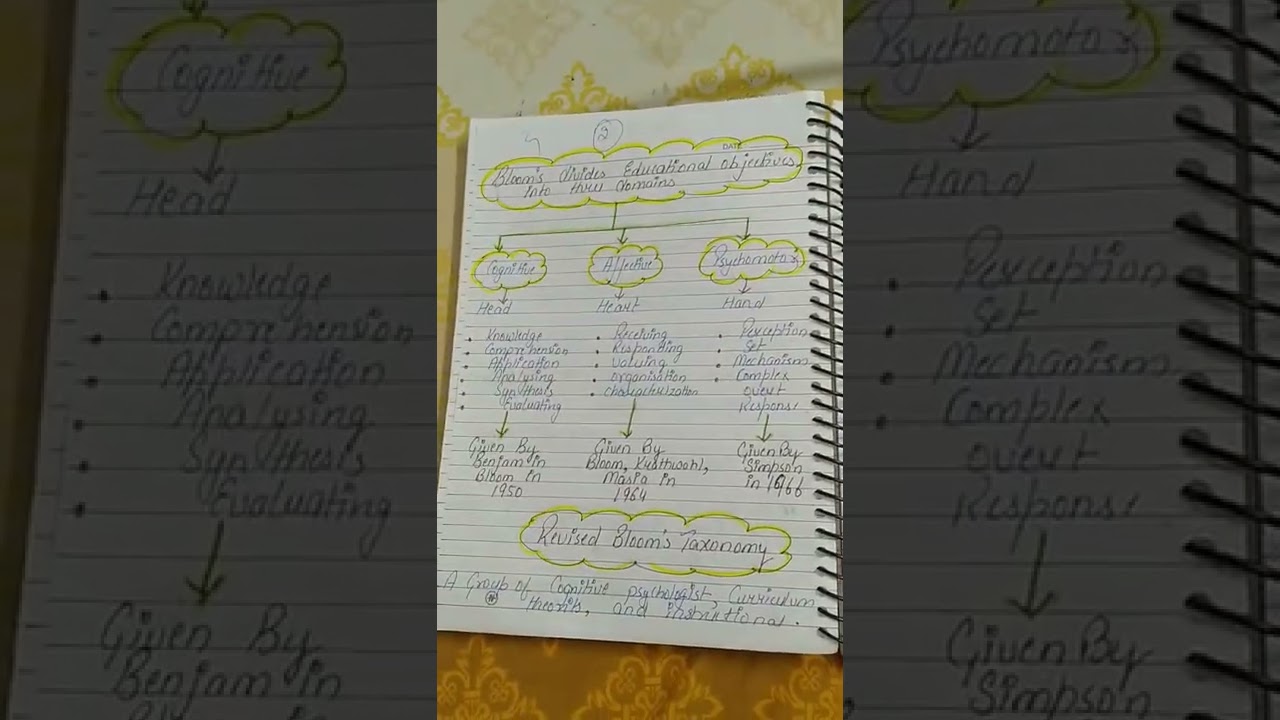 2
DATE
Bloom's divides Educational objectives,
into three domains
Cognitive
Affective
Psychomotor
Head
Heart
Hand
Knowledge
Comprehension
Application
Analysing
Synthesis
Evaluating
Receiving
Responding
Valuing
Organisation
Characterization
Perception
Set
Mechanism
Complex
overt
Response
Given By
Benjamin
Bloom in
1950
Given By
Bloom, Krathwohl,
Masia in
1964
Given By
Simpson
in 1966
Revised Bloom's Taxonomy
A Group of Cognitive psychologist, Curriculum
and
Cognitive
Head
Knowledge
Comprehension
Application
Analysing
Synthesis
Evaluating
Given By
Benjamin
Psychomotor
Hand
Perception
Set
Mechanism
Complex
overt
Response
Given By
Simpson